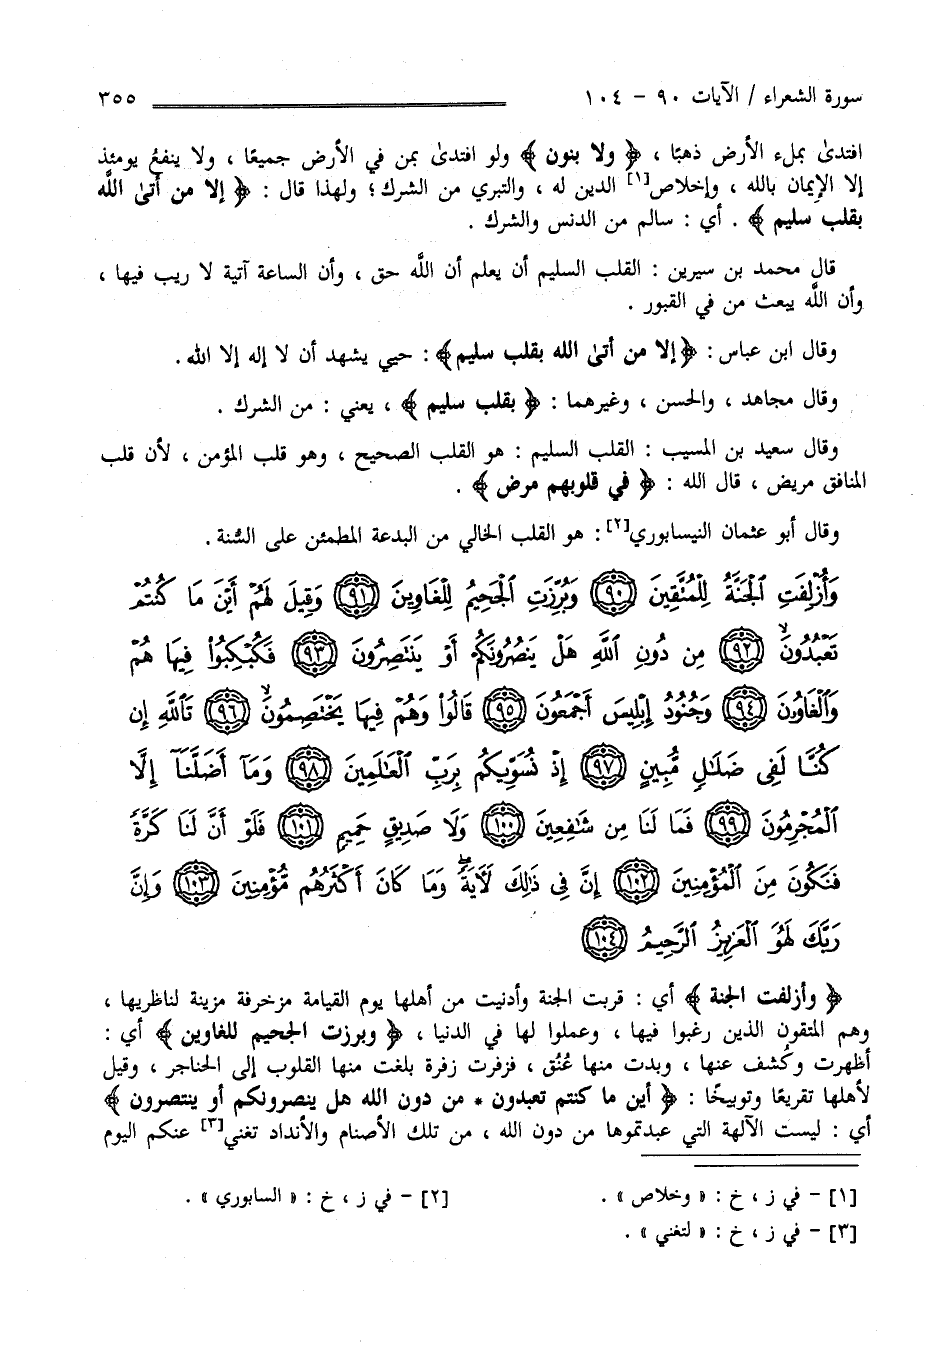 سورة الشعراء / الآيات ٩٠ - ١٠٤ ٣٥٥
افتدىٰ بملء الأرض ذهبًا ، ﴿ ولا بنون ﴾ ولو افتدىٰ بمن في الأرض جميعًا ، ولا ينفع يومئذ
إلا الإيمان بالله ، وإخلاص[١] الدين له ، والتبري من الشرك؛ ولهذا قال : ﴿ إلا من أتىٰ اللَّه
بقلب سليم ﴾ . أي : سالم من الدنس والشرك .
قال محمد بن سيرين : القلب السليم أن يعلم أن اللَّه حق ، وأن الساعة آتية لا ريب فيها ،
وأن اللَّه يبعث من في القبور .
وقال ابن عباس : ﴿إلا من أتىٰ الله بقلب سليم﴾ : حيي يشهد أن لا إله إلا الله .
وقال مجاهد ، والحسن ، وغيرهما : ﴿ بقلب سليم ﴾ ، يعني : من الشرك .
وقال سعيد بن المسيب : القلب السليم : هو القلب الصحيح ، وهو قلب المؤمن ، لأن قلب
المنافق مريض ، قال الله : ﴿ في قلوبهم مرض ﴾ .
وقال أبو عثمان النيسابوري[٢] : هو القلب الخالي من البدعة المطمئن على السُّنة .
وَأُزْلِفَتِ ٱلْجَنَّةُ لِلْمُنَّقِينَ ﴿٩٠﴾ وَبُرِّزَتِ ٱلْجَحِيمُ لِلْغَاوِينَ ﴿٩١﴾ وَقِيلَ لَهُمْ أَيْنَ مَا كُنتُمْ
تَعْبُدُونَۙ ﴿٩٢﴾ مِن دُونِ ٱللَّهِ هَلْ يَنصُرُونَكُمْ أَوْ يَنتَصِرُونَ ﴿٩٣﴾ فَكُبْكِبُواْ فِيهَا هُمْ
وَٱلْغَاوُۥنَ ﴿٩٤﴾ وَجُنُودُ إِبْلِيسَ أَجْمَعُونَ ﴿٩٥﴾ قَالُواْ وَهُمْ فِيهَا يَخْتَصِمُونَۙ ﴿٩٦﴾ تَٱللَّهِ إِن
كُنَّا لَفِى ضَلَٰلٍ مُّبِينٍ ﴿٩٧﴾ إِذْ نُسَوِّيكُم بِرَبِّ ٱلْعَٰلَمِينَ ﴿٩٨﴾ وَمَآ أَضَلَّنَآ إِلَّا
ٱلْمُجْرِمُونَ ﴿٩٩﴾ فَمَا لَنَا مِن شَٰفِعِينَ ﴿١٠٠﴾ وَلَا صَدِيقٍ حَمِيمٍ ﴿١٠١﴾ فَلَوْ أَنَّ لَنَا كَرَّةً
فَنَكُونَ مِنَ ٱلْمُؤْمِنِينَ ﴿١٠٢﴾ إِنَّ فِى ذَٰلِكَ لَأٓيَةًۖ وَمَا كَانَ أَكْثَرُهُم مُّؤْمِنِينَ ﴿١٠٣﴾ وَإِنَّ
رَبَّكَ لَهُوَ ٱلْعَزِيزُ ٱلرَّحِيمُ ﴿١٠٤﴾
﴿ وأزلفت الجنة ﴾ أي : قربت الجنة وأدنيت من أهلها يوم القيامة مزخرفة مزينة لناظريها ،
وهم المتقون الذين رغبوا فيها ، وعملوا لها في الدنيا ، ﴿ وبرزت الجحيم للغاوين ﴾ أي :
أظهرت وكُشف عنها ، وبدت منها عُنُق ، فزفرت زفرة بلغت منها القلوب إلى الحناجر ، وقيل
لأهلها تقريعًا وتوبيخًا : ﴿ أين ما كنتم تعبدون * من دون الله هل ينصرونكم أو ينتصرون ﴾
أي : ليست الآلهة التي عبدتموها من دون الله ، من تلك الأصنام والأنداد تغني[٣] عنكم اليوم
[١] - في ز ، خ : « وخلاص» . [٢] - في ز ، خ : « السابوري » .
[٣] - في ز ، خ : « لتغني » .